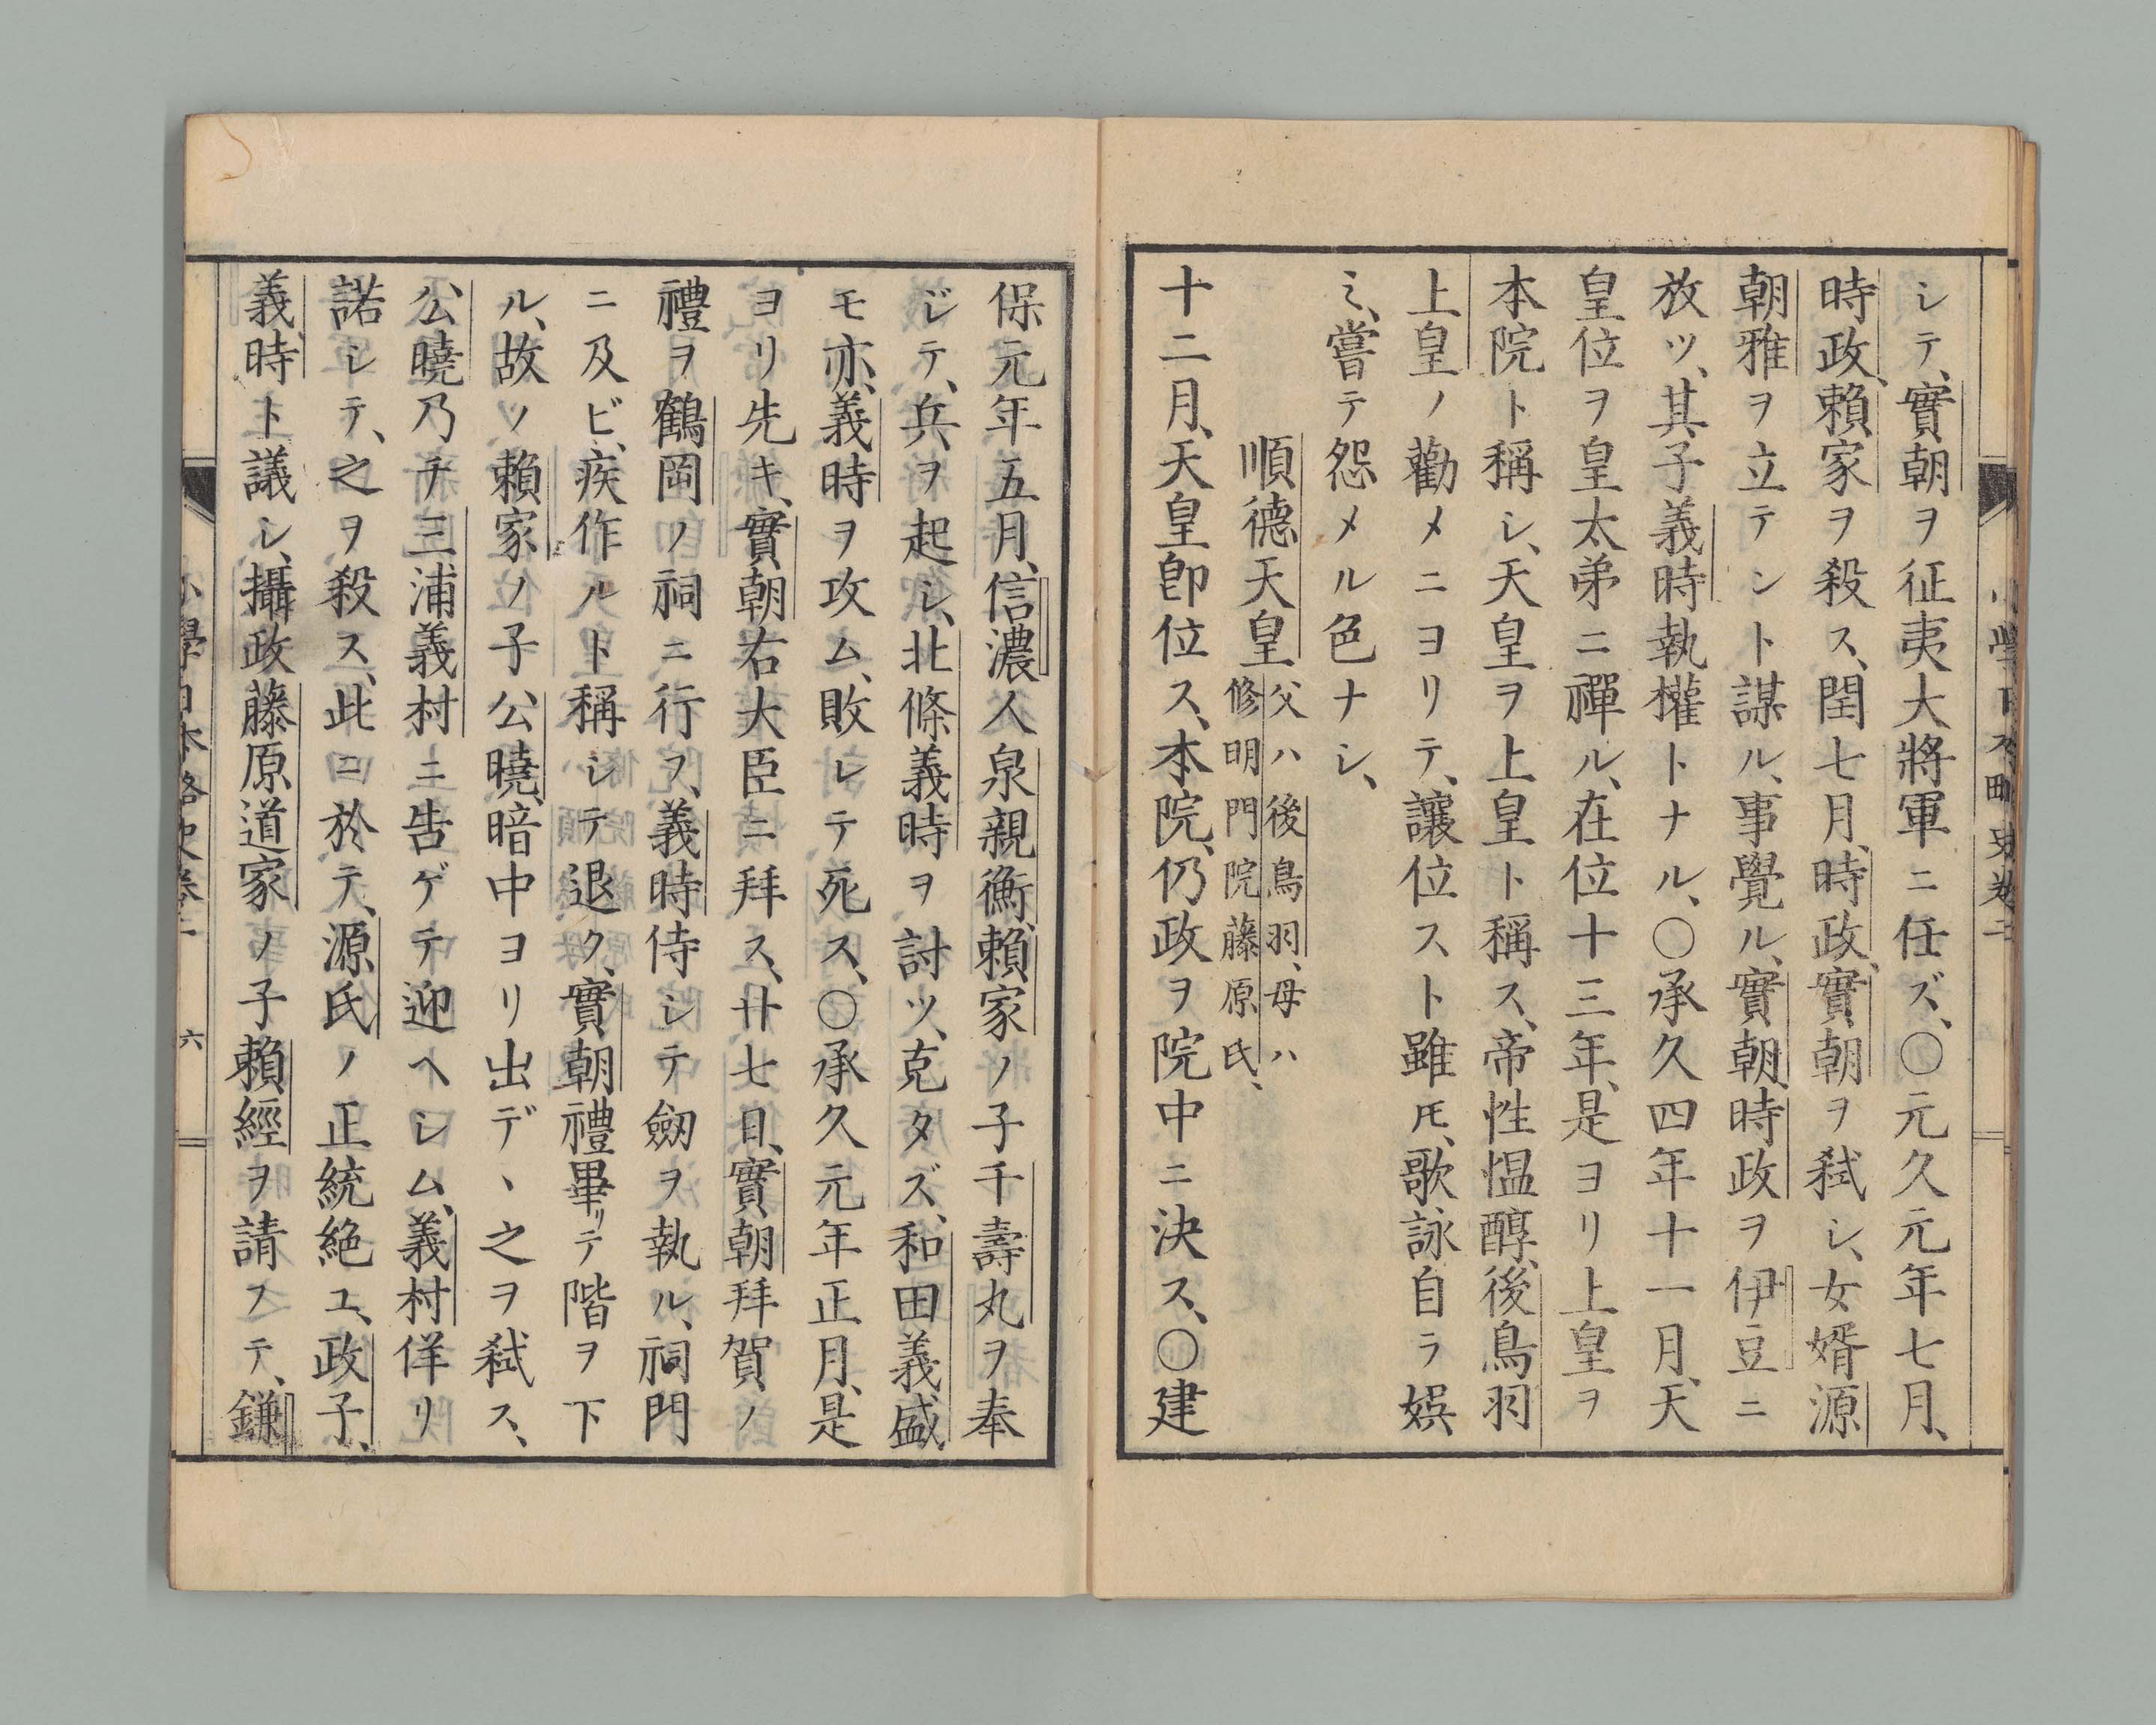 シテ、實朝ヲ征夷大將軍ニ任ズ、〇元久元年七月、
時政、賴家ヲ殺ス、閏七月、時政、實朝ヲ弑シ、女婿源
朝雅ヲ立テントト謀ル、事覺ル、實朝、時政ヲ伊豆ニ
放ツ、其子義時執權トナル、〇承久四年十一月、天
皇位ヲ皇太弟ニ禪ル、在位十三年、是ヨリ上皇ヲ
本院ト稱シ、天皇ヲ上皇ト稱ス、帝性愠醇、後鳥羽
上皇ノ勸メニヨリテ、讓位スト雖𪜈、歌詠自ラ娯
ミ、嘗テ怨メル色ナシ、
順德天皇 父ハ後鳥羽、母ハ
修明門院藤原氏、
十二月、天皇卽位ス、本院、仍政ヲ院中ニ決ス、〇建
保元年五月、信濃人泉親衡、賴家ノ子千壽丸ヲ奉
ジテ、兵ヲ起シ、北條義時ヲ討ツ、克タズ、和田義盛
モ亦、義時ヲ攻ム、敗レテ死ス、〇承久元年正月、是
ヨリ先キ、實朝右大臣ニ拜ス、廿七日、實朝拜賀ノ
禮ヲ鶴岡ノ祠ニ行フ、義時侍シテ劔ヲ執ル、祠門
ニ及ビ、疾作ルト稱シテ退ク、實朝禮畢リテ階ヲ下
ル、故ノ賴家ノ子公曉、暗中ヨリ出デヽ之ヲ弑ス、
公曉乃チ三浦義村ニ告ゲテ迎ヘシム、義村佯リ
諾シテ、之ヲ殺ス、此ニ於テ、源氏ノ正統絶ユ、政子、
義時ト議シ、攝政藤原道家ノ子賴經ヲ請フテ、鎌
小學日本略史卷二
六